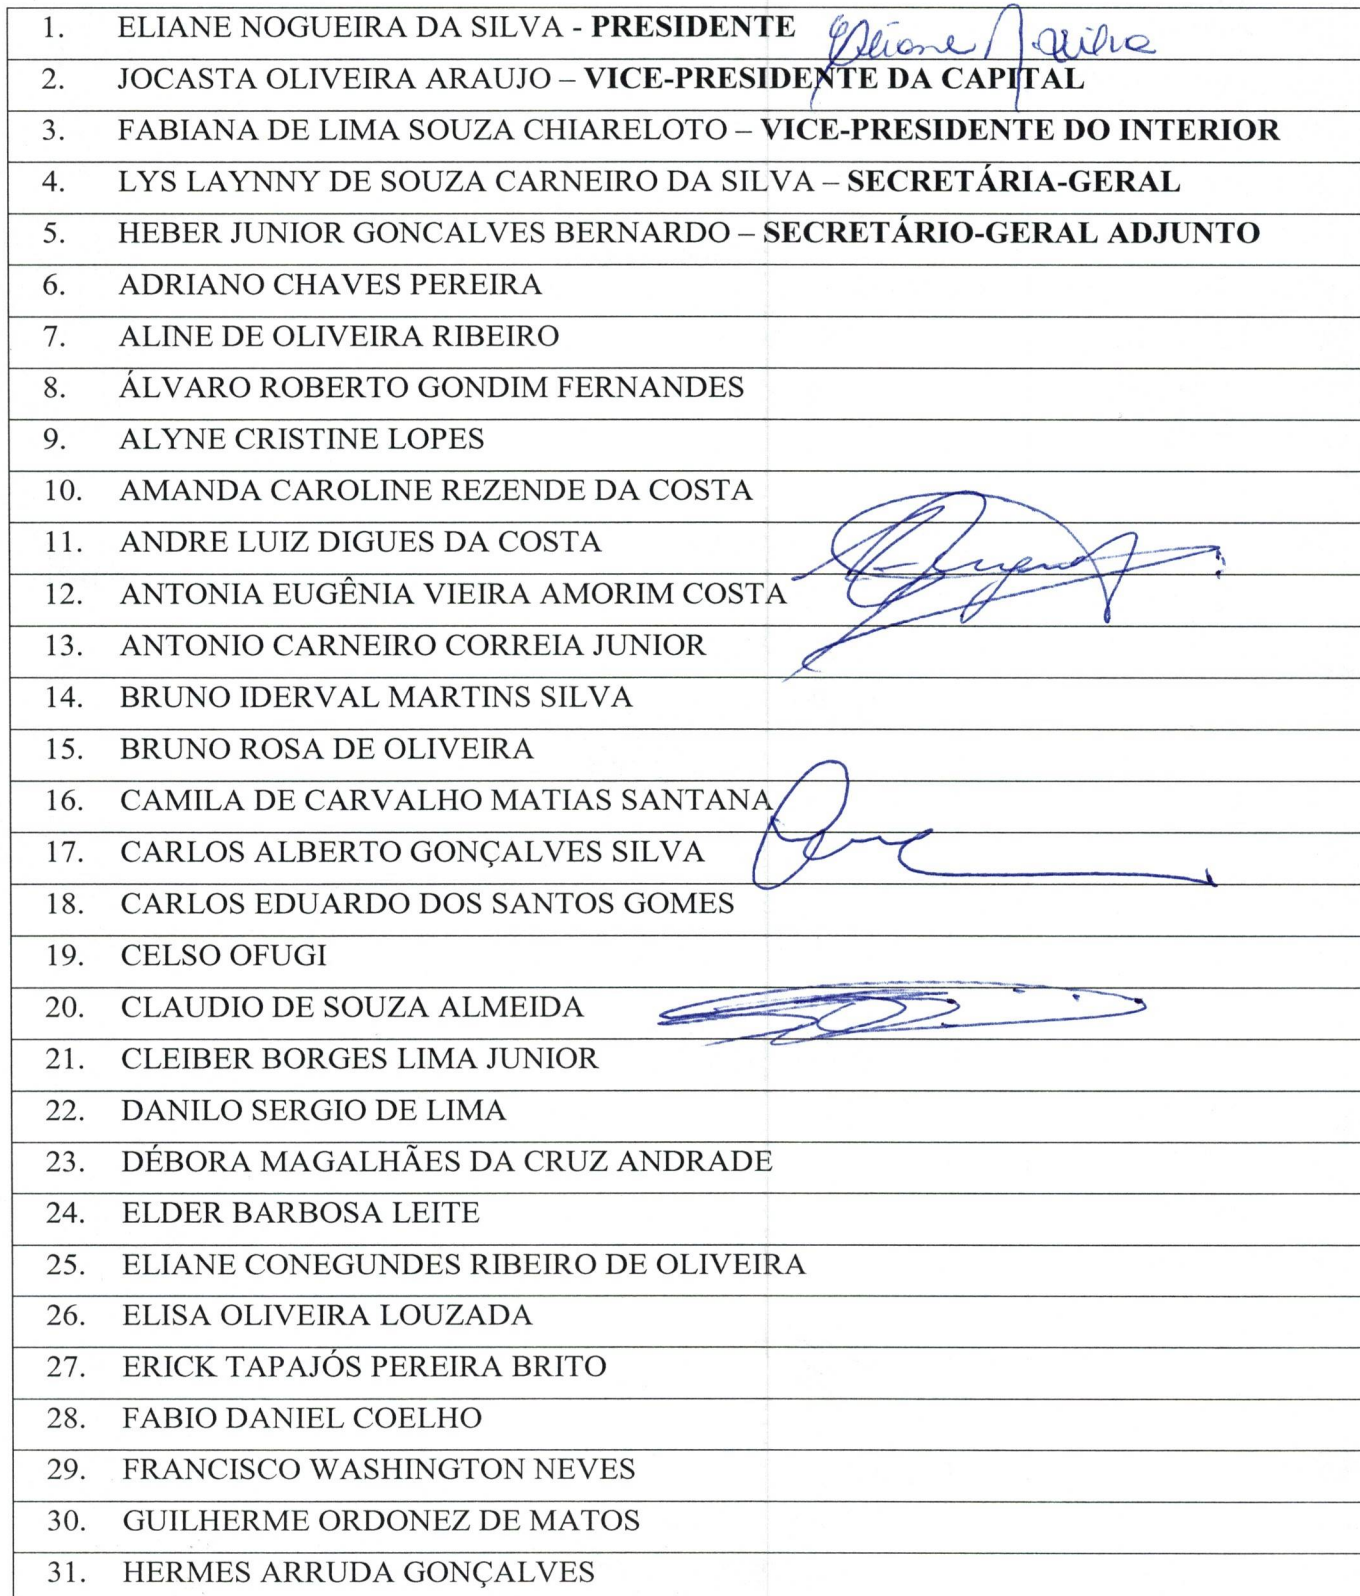 1. ELIANE NOGUEIRA DA SILVA - PRESIDENTE Eliane N Silva
2. JOCASTA OLIVEIRA ARAUJO – VICE-PRESIDENTE DA CAPITAL
3. FABIANA DE LIMA SOUZA CHIARELOTO – VICE-PRESIDENTE DO INTERIOR
4. LYS LAYNNY DE SOUZA CARNEIRO DA SILVA – SECRETÁRIA-GERAL
5. HEBER JUNIOR GONCALVES BERNARDO – SECRETÁRIO-GERAL ADJUNTO
6. ADRIANO CHAVES PEREIRA
7. ALINE DE OLIVEIRA RIBEIRO
8. ÁLVARO ROBERTO GONDIM FERNANDES
9. ALYNE CRISTINE LOPES
10. AMANDA CAROLINE REZENDE DA COSTA
11. ANDRE LUIZ DIGUES DA COSTA
12. ANTONIA EUGÊNIA VIEIRA AMORIM COSTA
13. ANTONIO CARNEIRO CORREIA JUNIOR
14. BRUNO IDERVAL MARTINS SILVA
15. BRUNO ROSA DE OLIVEIRA
16. CAMILA DE CARVALHO MATIAS SANTANA
17. CARLOS ALBERTO GONÇALVES SILVA
18. CARLOS EDUARDO DOS SANTOS GOMES
19. CELSO OFUGI
20. CLAUDIO DE SOUZA ALMEIDA
21. CLEIBER BORGES LIMA JUNIOR
22. DANILO SERGIO DE LIMA
23. DÉBORA MAGALHÃES DA CRUZ ANDRADE
24. ELDER BARBOSA LEITE
25. ELIANE CONEGUNDES RIBEIRO DE OLIVEIRA
26. ELISA OLIVEIRA LOUZADA
27. ERICK TAPAJÓS PEREIRA BRITO
28. FABIO DANIEL COELHO
29. FRANCISCO WASHINGTON NEVES
30. GUILHERME ORDONEZ DE MATOS
31. HERMES ARRUDA GONÇALVES